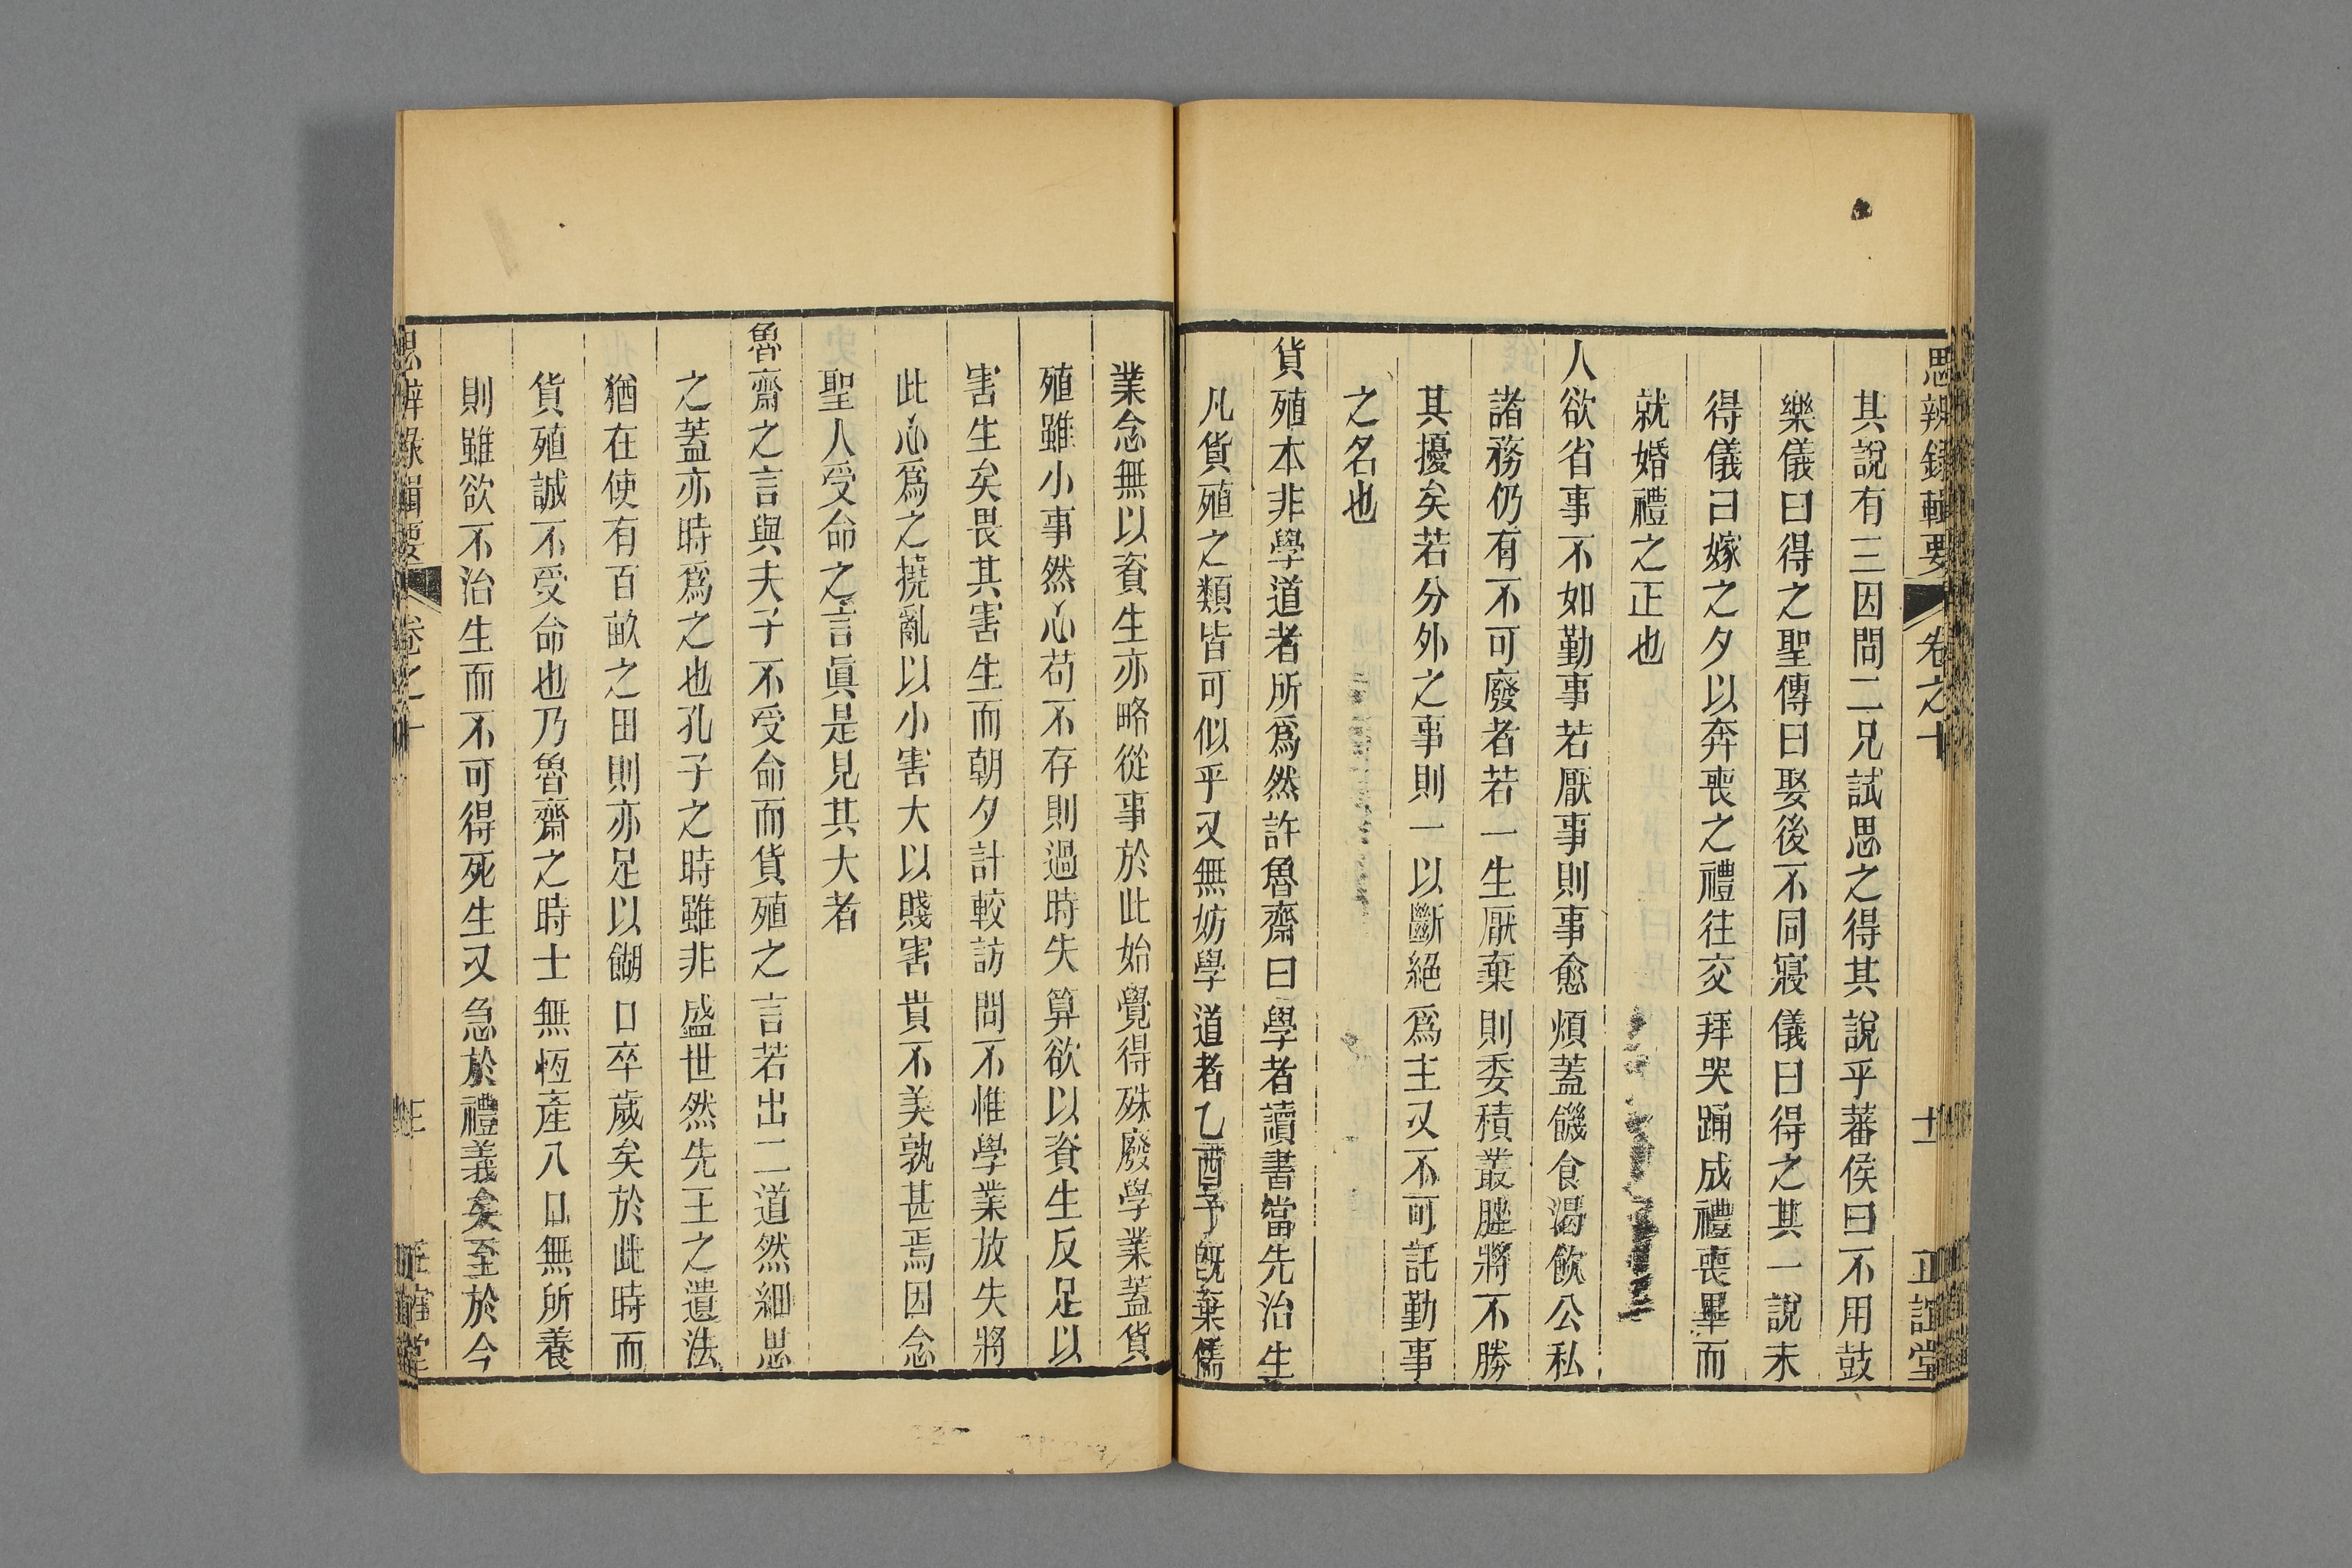 思辨錄輯要 卷之十 十一 正誼堂
其說有三因問二兄試思之得其說乎蕃侯曰不用鼓
樂儀曰得之聖傳曰娶後不同寢儀曰得之其一說未
得儀曰嫁之夕以奔喪之禮往交拜哭踊成禮喪畢而
就婚禮之正也
人欲省事不如勤事若厭事則事愈煩蓋饑食渴飲公私
諸務仍有不可廢者若一生厭棄則委積叢脞將不勝
其擾矣若分外之事則一以斷絕爲主又不可託勤事
之名也
貨殖本非學道者所爲然許魯齋曰學者讀書當先治生
凡貨殖之類皆可似乎又無妨學道者乙酉予旣棄儒
業念無以資生亦略從事於此始覺得殊廢學業蓋貨
殖雖小事然心苟不存則過時失算欲以資生反足以
害生矣畏其害生而朝夕計較訪問不惟學業放失將
此心爲之撓亂以小害大以賤害貴不美孰甚焉因念
聖人受命之言眞是見其大者
魯齋之言與夫子不受命而貨殖之言若出二道然細思
之蓋亦時爲之也孔子之時雖非盛世然先王之遺法
猶在使有百畝之田則亦足以餬口卒歲矣於此時而
貨殖誠不受命也乃魯齋之時士無恆產八口無所養
則雖欲不治生而不可得死生又急於禮義矣至於今
思辨錄輯要 卷之十